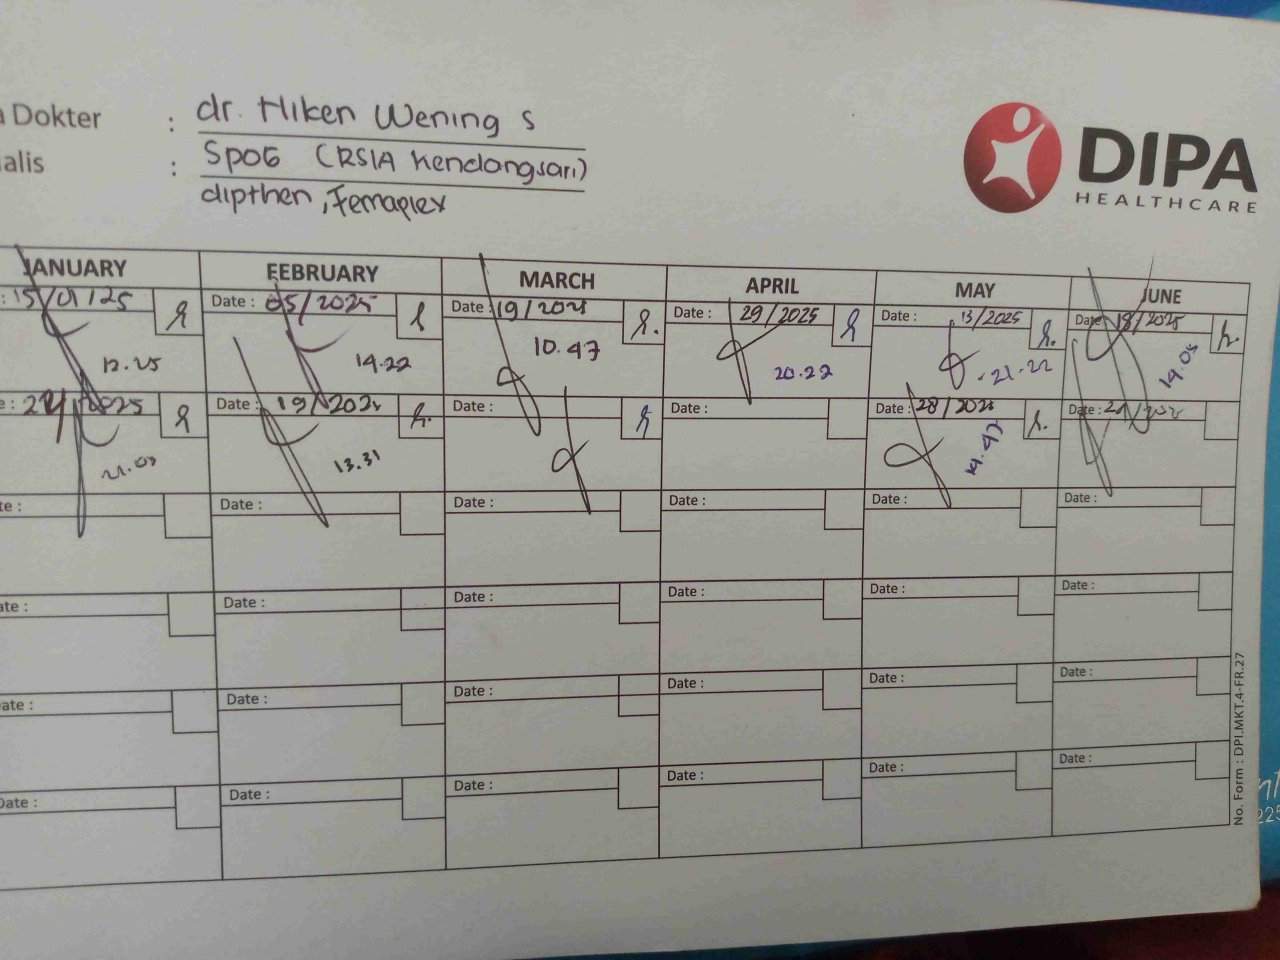 a Dokter : dr. Hiken Wening S
ialis : SpOG (RSIA Kendangsari)
dipthen, Femaplex
DIPA
HEALTHCARE
JANUARY FEBRUARY MARCH APRIL MAY JUNE
: 15/01/25 Date : 05/2025 Date : 19/2025 Date : 29/2025 Date : 13/2025 Date 18/2025
12.25 14.22 10.47 20.22 21.22 14.05
e : 2025 Date : 19/202 Date : Date : Date : 28/202 Date : 202
13.31
te : Date : Date : Date : Date : Date :
ate : Date : Date : Date : Date : Date :
ate : Date : Date : Date : Date : Date :
Date : Date : Date : Date : Date : Date :
No. Form : DPI.MKT.4-FR.27